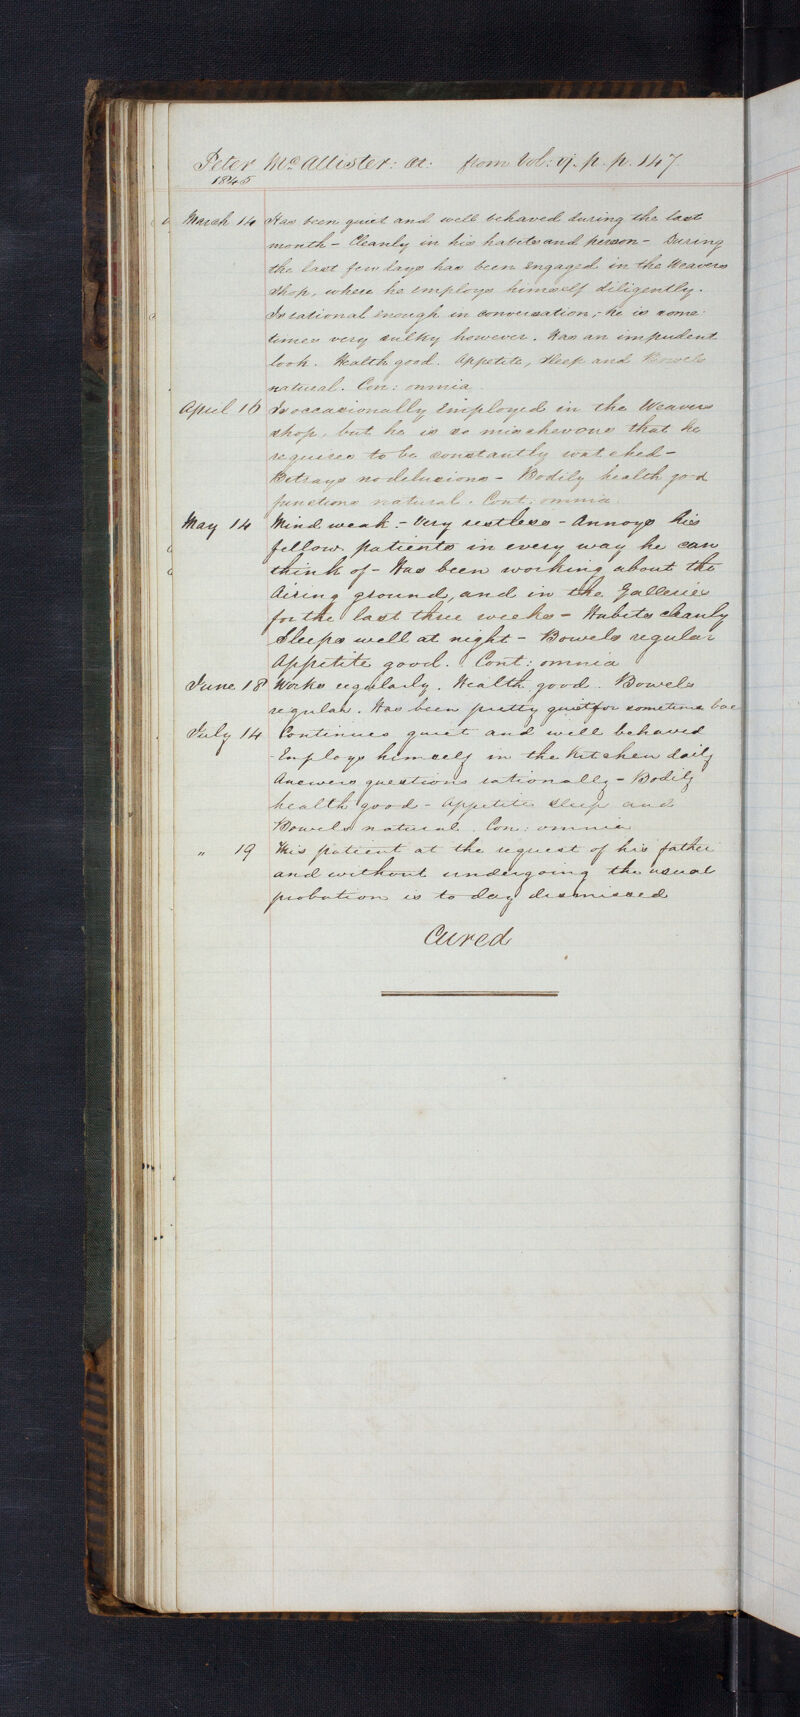 Peter McAllister: æt: from Vol: vj. p. p. 147
1845
March 14 Has been quiet and well behaved during the last
month - Cleanly in his habits and person - During
the last few days has been engaged in the Weavers
Shop, where he employs himself diligently.
Is rational enough in conversation; he is some:
times very sulky however. Has an impudent
look. Health good. Appetite, sleep and Bowels
natural. Con: omnia
April 16 Is occasionally employed in the Weavers
shop, but he is so mischevons that he
requires to be constantly watched -
Betrays no delusions - Bodily health good
functions natural. Cont: omnia.
May 14 Mind weak. - Very restless - Annoys his
fellow patients in every way he can
think of - Has been working about the
Airing ground, and in the Galleries
for the last three weeks - Habits cleanly
Sleeps well at night - Bowels regular
Appetite good. Cont: omnia
June 18 Works regularly. Health good. Bowels
regular. Has been pretty quiet for sometime bac
July 14 Continues quiet and well behaved
- Employs himself in the Kitchen daily
Answers questions rationally - Bodily
health good - Appetite sleep and
Bowels natural. Con: omnia
" 19 This patient at the request of his father
and without undergoing the usual
probation is to day dismissed
Cured